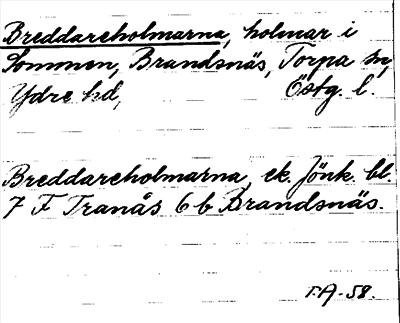 Breddareholmarna, holmar i
Sommen, Brandsnäs, Torpa sn,
Ydre hd, Östg. l.
Breddareholmarna, ek. Jönk. bl.
7 F Tranås 6 b Brandsnäs.
T.A-58.